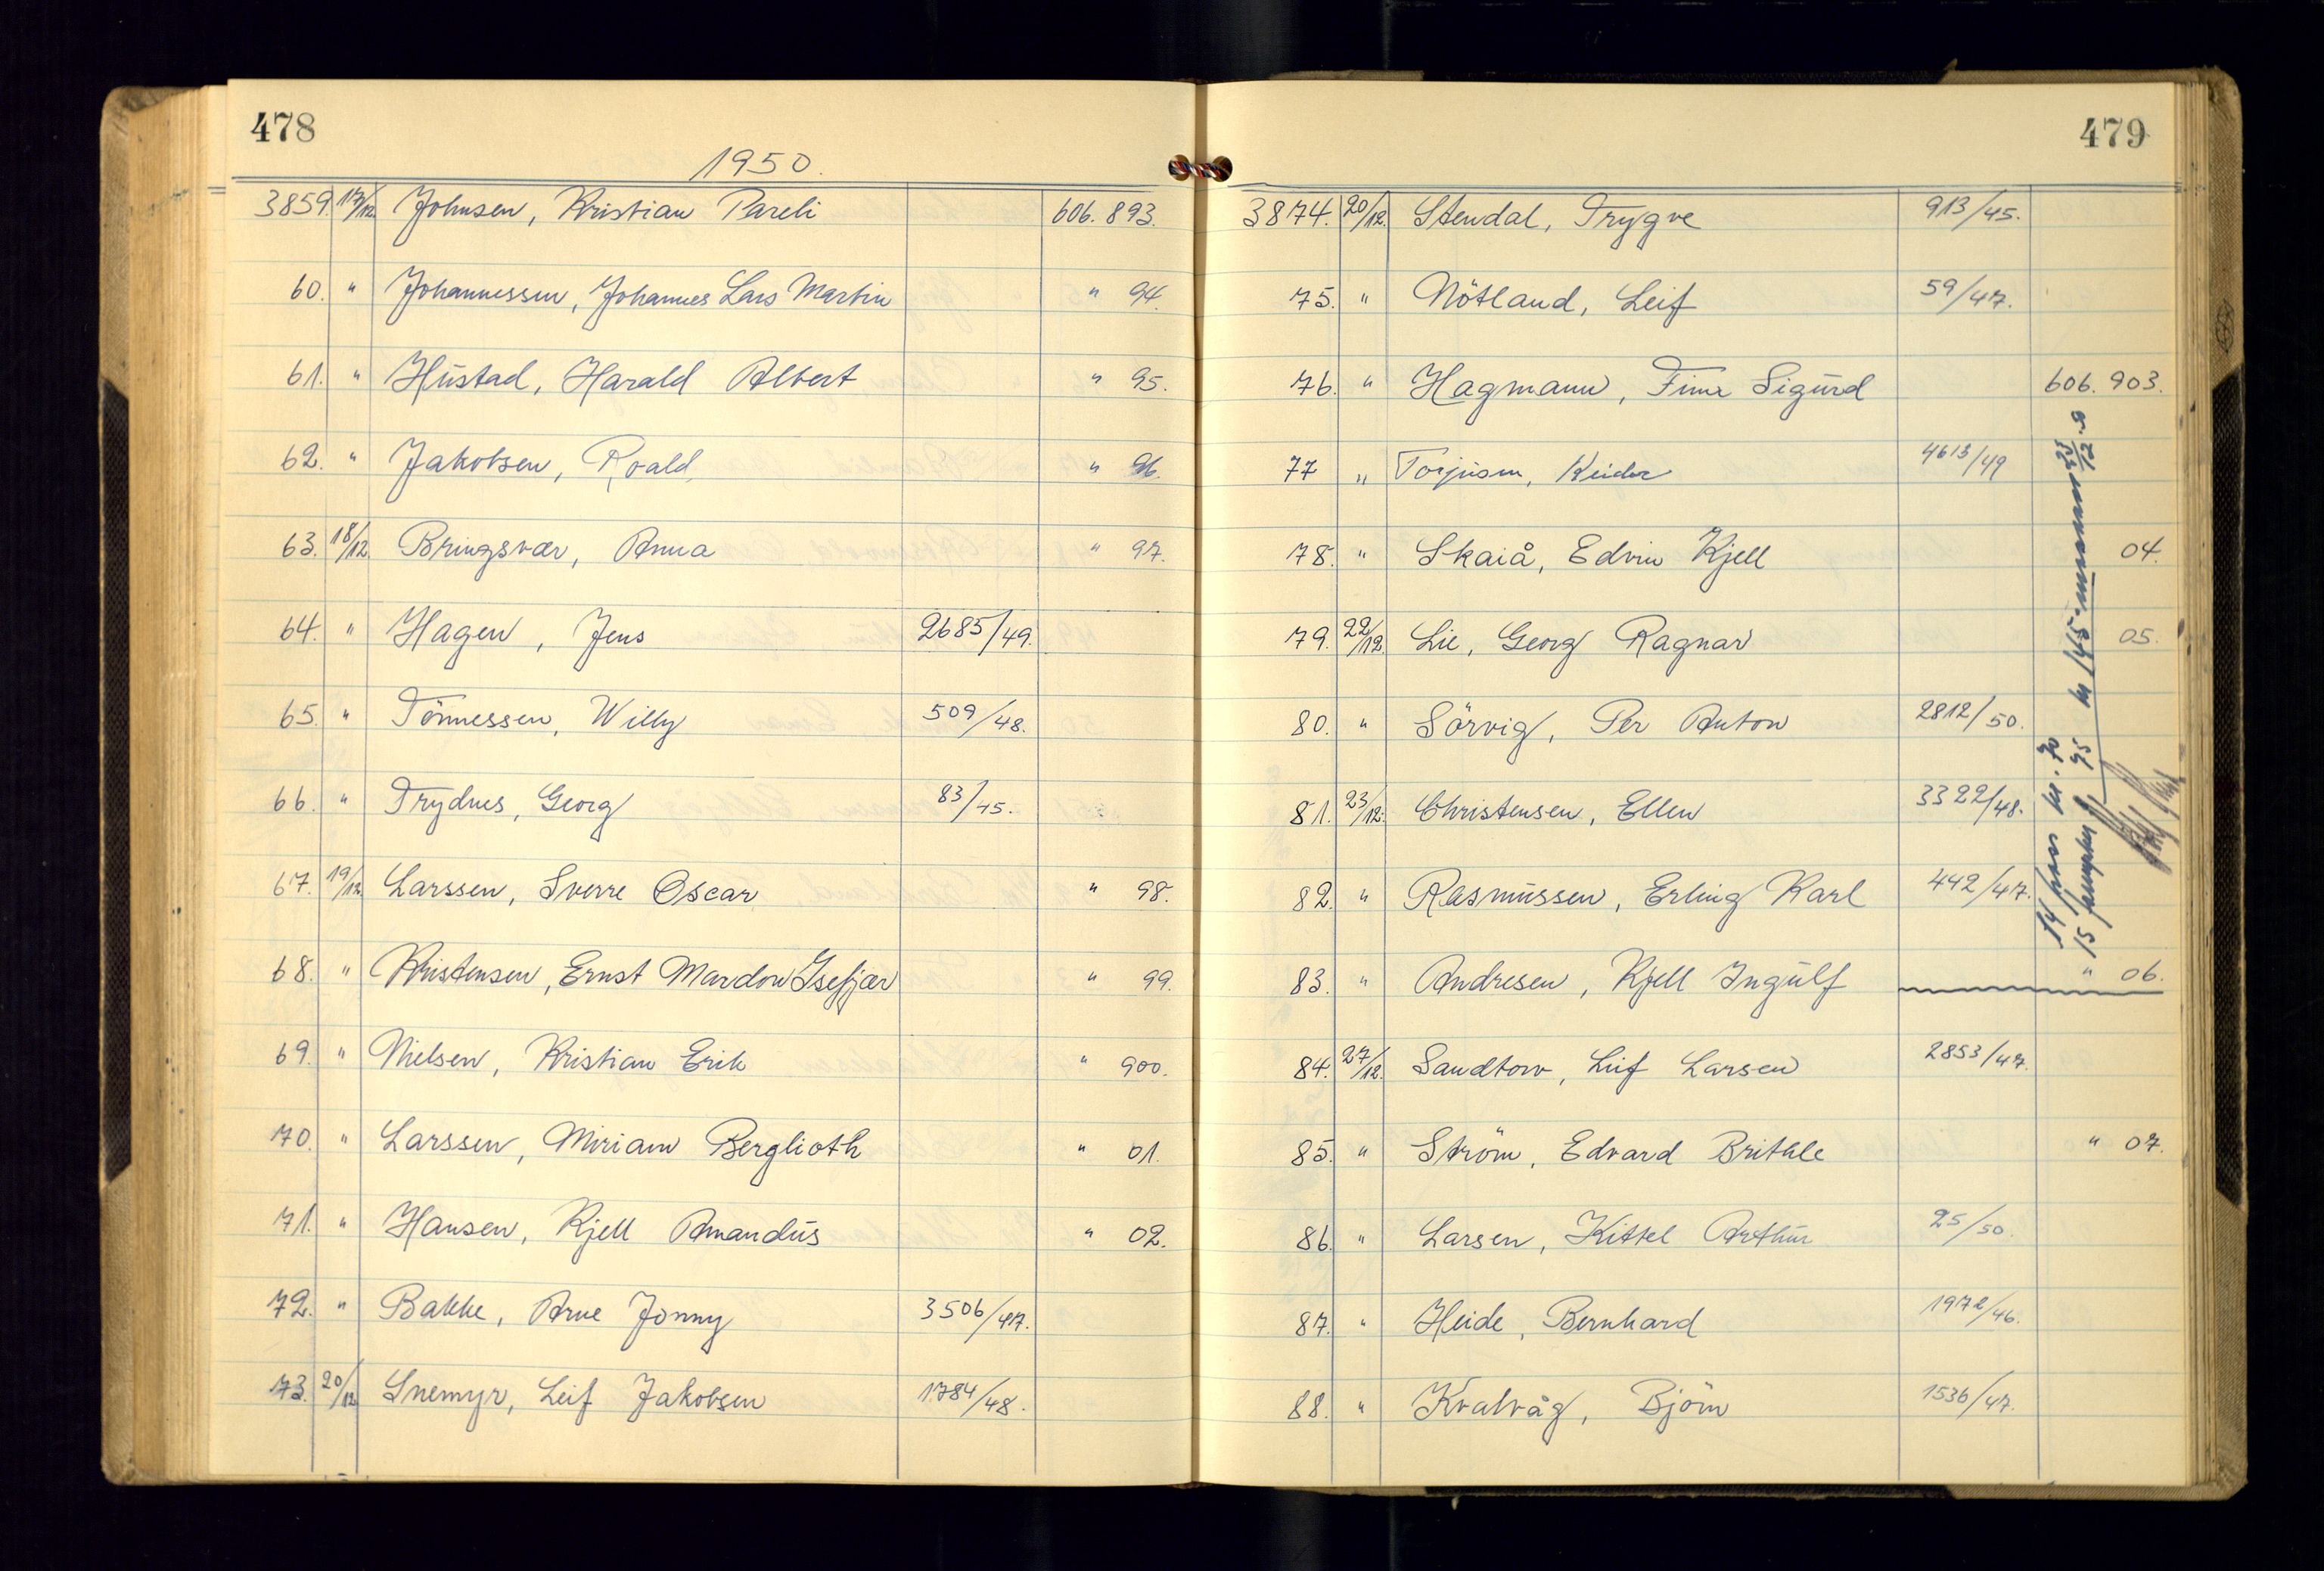 478
1950.
3859. 17/12. Johnsen, Kristian Pareli 606.893.
60. " Johannessen, Johannes Lars Martin " 94.
61. " Hustad, Harald Albert " 95.
62. " Jakobsen, Roald " 96.
63. 18/12 Bringsvær, Anna " 97.
64. " Hagen, Jens 2685/49.
65. " Tönnessen, Willy 509/48.
66. " Trydnes, Georg 83/45.
67. 19/12. Larssen, Sverre Oscar " 98.
68. " Kristensen, Ernst Mardon Isefjær " 99.
69. " Nielsen, Kristian Erik " 900.
70. " Larssen, Miriam Berglioth " 01.
71. " Hansen, Kjell Amandus " 02.
72. " Bakke, Arne Jonny 3506/47.
73. 20/12 Snemyr, Leif Jakobsen 1784/48.
479
3874. 20/12. Stendal, Trygve 913/45.
75. " Nötland, Leif 59/47.
76. " Hagmann, Finn Sigurd 606.903.
77 " Torjusen, Reidar 4613/49
78. " Skaiå, Edvin Kjell 04.
79. 22/12. Lie, Georg Ragnar 05.
80. " Sörvig, Per Anton 2812/50.
81. 23/12. Christensen, Ellen 3322/48.
82. " Rasmussen, Erling Karl 442/47.
83. " Andresen, Kjell Ingulf " 06.
84. 27/12. Sandtorv, Leif Larsen 2853/47.
85. " Ström, Edvard Brithle " 07.
86. " Larsen, Kittel Arthur 25/50.
87. " Heide, Bernhard 1972/46.
88. " Kvalvåg, Björn 1536/47.
14 pass kr. 70
15 75 kr 145